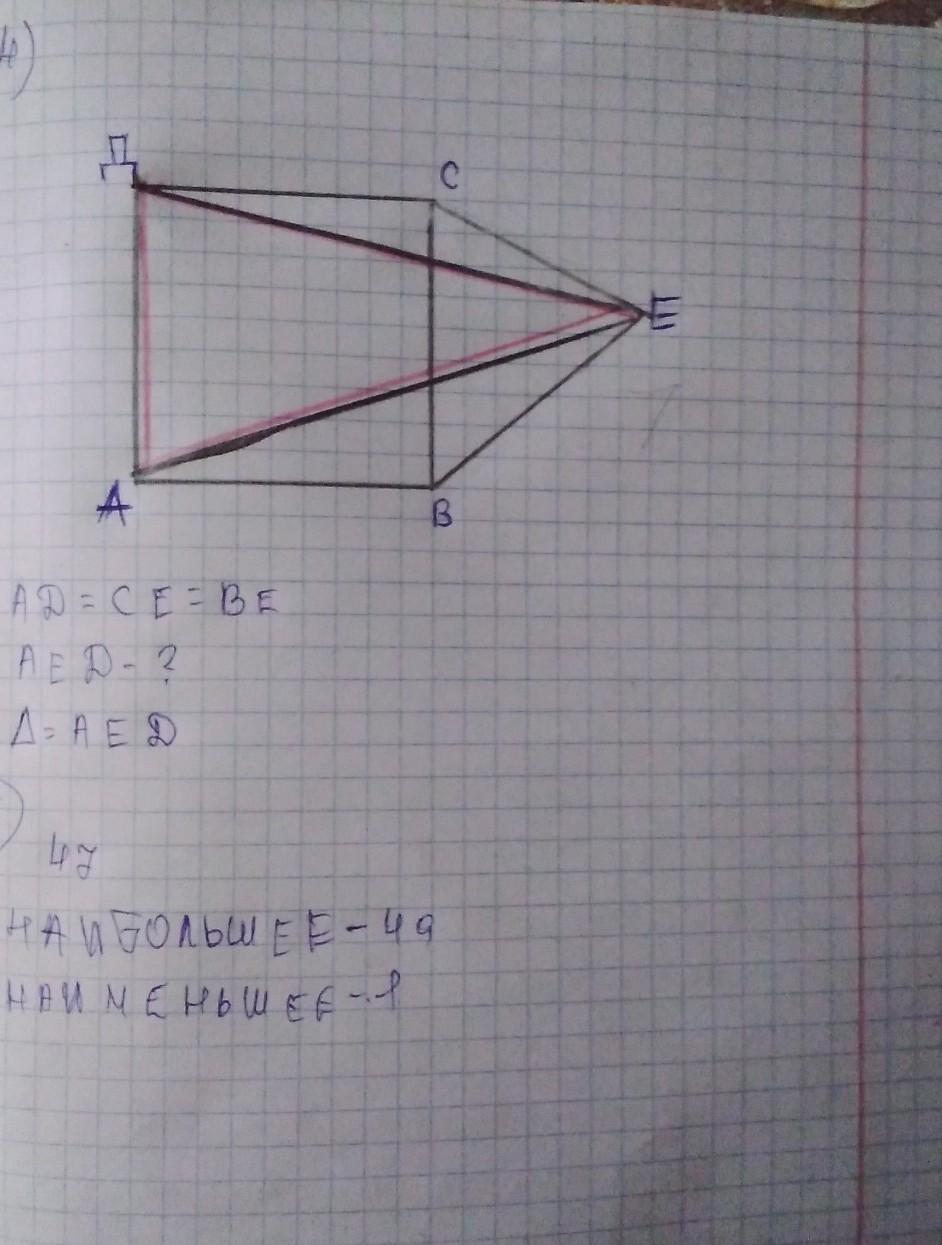 4)
Д
C
E
A
B
AD = CE = BE
AED - ?
Δ = AED
)
47
НАИБОЛЬШЕЕ - 49
НАИМЕНЬШЕЕ - 1